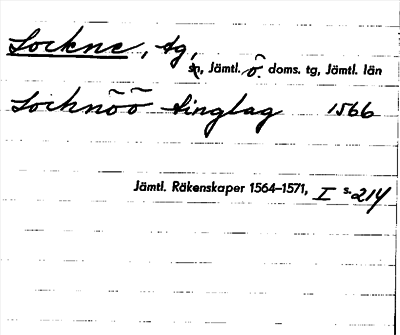 Lockne, tg,
sn, Jämtl. ö. doms. tg, Jämtl. län
Locknõõ tinglag 1566
Jämtl. Räkenskaper 1564–1571, I s. 214